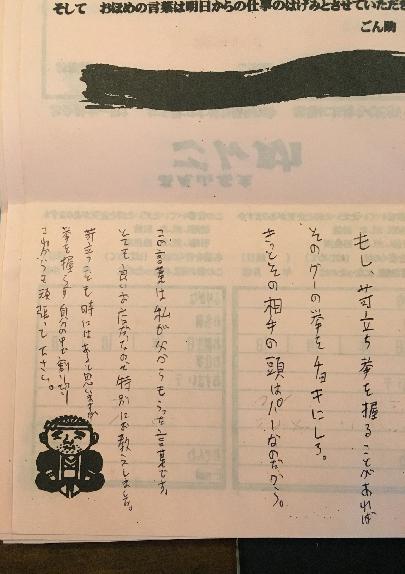 そして　おほめの言葉は明日からの仕事のはげみとさせていただき
ごん助
もし、苛立ち拳を握ることがあれば
そのグーの拳をチョキにしろ。
きっとその相手の頭はパーなのだから。
この言葉は私が父からもらった言葉です。
とても良いお言葉なので特別にお教えします。
苛立つことも時にはあると思いますが
拳を握らず自分の中で割り切り
これからも頑張って下さい。